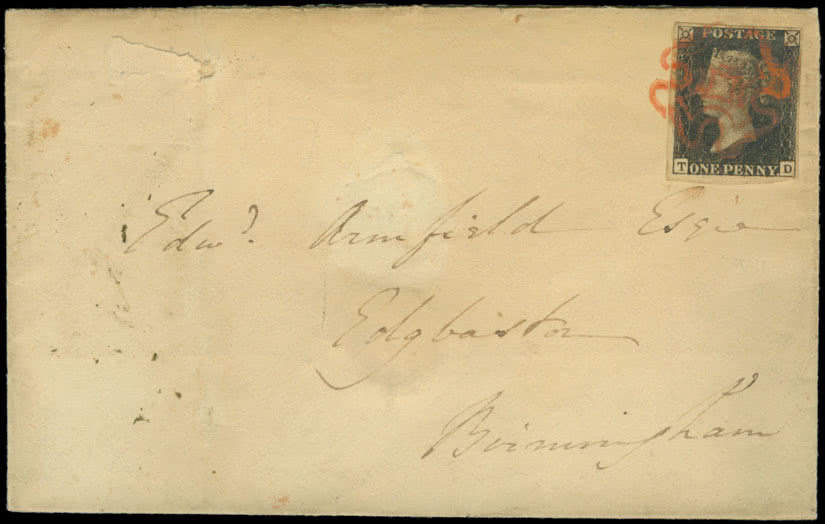 POSTAGE
T ONE PENNY D
Edwd. Armfield Esqre
Edgbaston
Birmingham